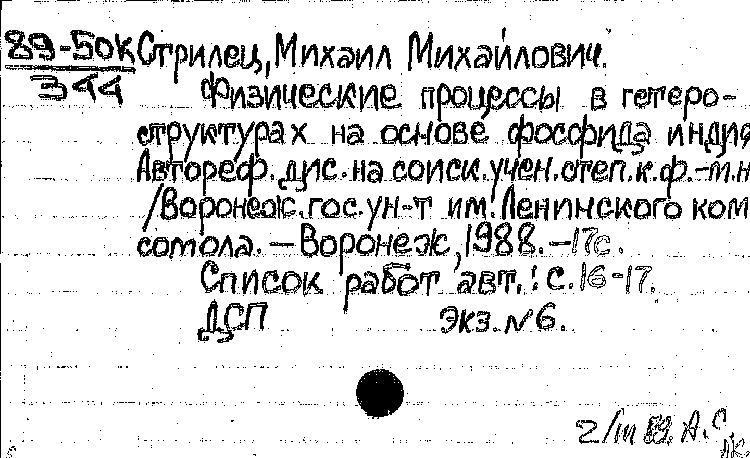 89-50К Стрилец, Михаил Михайлович.
344 Физические процессы в гетеро-
структурах на основе фосфида индия
Автореф. дис. на соиск. учен. степ. к. ф.-м. н
/Воронеж. гос. ун-т им. Ленинского ком
сомола. — Воронеж, 1988. — 17с.
Список работ авт.: с. 16-17.
ДСП Экз. №6.
2/III 89. А.С.